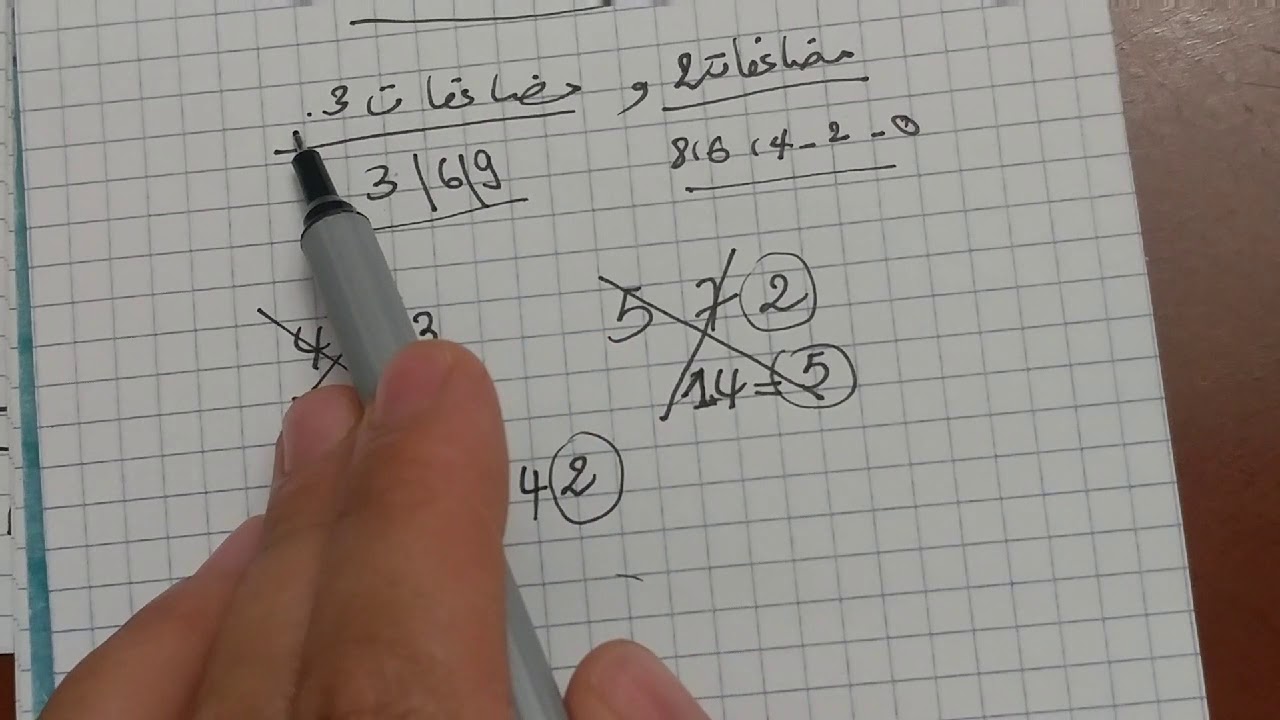 مضاعفات 2 و مضاعفات 3.
0 - 2 - 4 ، 6 ، 8
3 | 6 | 9
5 7 2
4 3
14 = 5
4 2